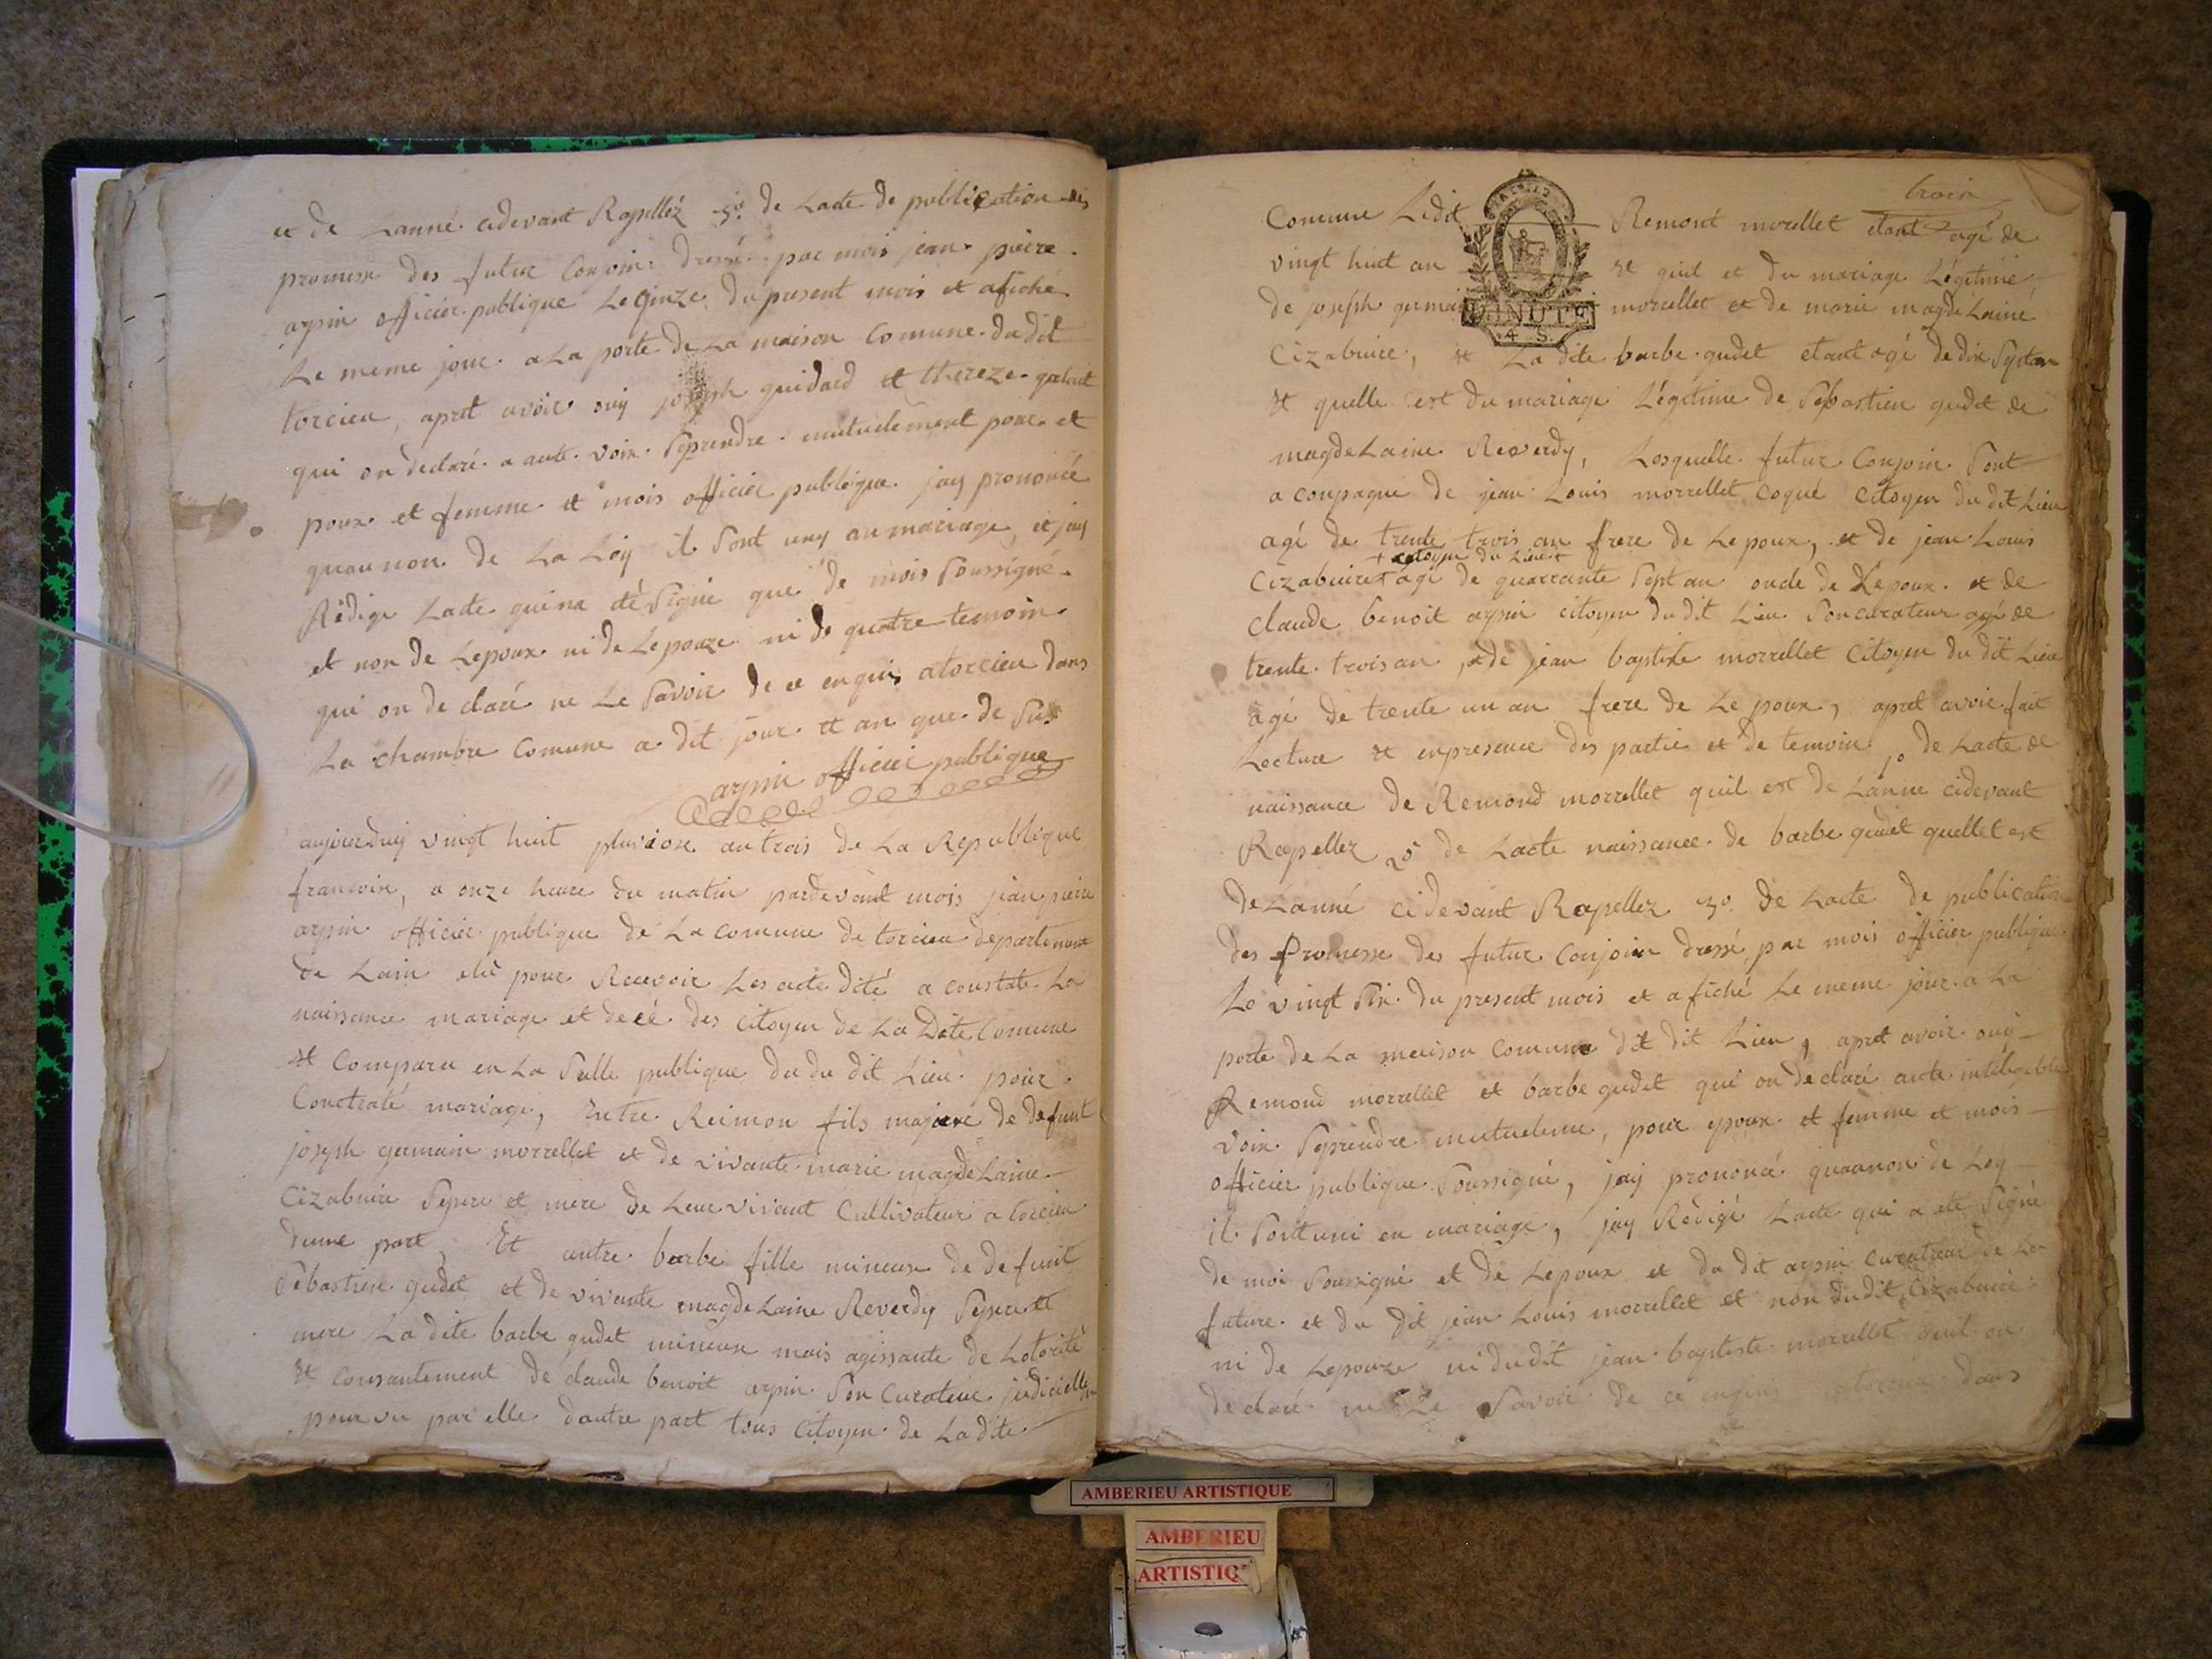 et de Lanné cidevant Rapelléz 3º. de Lacte de publication des
promesse des futur Conjoin dressé par mois jean pierre
arpin officier publique Le Qinze du present mois et afiché
Le meme jour a La porte de La maison Comune dudit
torcieu, apret avoir ouy joseph guidard et thereze
qui on declaré a aute voix Seprendre mutuelement pour et
poux et femme et mois officier publique jay prononcé
quaunon de La Loy il Sont uny au mariage, et jay
Rédigé Lacte quina été Signé que de mois Soussigné
et non de Lepoux ni de Lepouze ni de quatre temoin
qui on declaré ne Le Savoir de ce enquis atorcieu dans
La chambre Comune a dit jour et an que de Sus
arpin officier publique
aujourduy vingt huit pluviose an trois de La Republique
francoise, a onze heure du matin pardevant mois jean pierre
arpin officier publique de La comune de torcieu departement
de Lain elû pour Recevoir Les acte dété a constaté La
naissance mariage et decé des Citoyen de La Dite Comune
et Comparu en La Salle publique du du dit Lieu pour
Contraté mariage, Entre Reimon fils majeure de defunt
joseph germain morrellet et de vivante marie magdeLaine
Cizabuire Sepere et mere de Leur vivant Cultivateur a torcieu
dune part, Et autre barbe fille mineure de defunt
Sebastien gudet et de vivante magdeLaine Reverdy Sepere et
mere La dite barbe gudet mineure mais agissante de Lotorité
et Consantement de claude benoit arpin Son Curateur judicielle
pourvu par elle dautre part tous Citoyen de Ladite
Comune Ledit Remont morellet etant agé de
vingt huit an et quil et du mariage Légitime
de joseph germain morrellet et de marie magdeLaine
MINUTE
4 S.
Cizabuire, et La dite barbe gudet etant agé de dix Septan
et quelle est du mariage Légitime de Sebastien gudet de
magdeLaine Reverdy, Lesquelle futur Conjoin Sont
a conpagné de jean Louis morrellet coqué Citoyen du dit Lieu
agé de trente trois an frere de Lepoux, et de jean Louis
+ citoyen du Lieu +
Cizabuire + agé de quarrante Sept an oncle de Lepoux et de
claude benoit arpin citoyen dudit Lieu Son curateur agé de
trente trois an, et de jean baptiste morrellet Citoyen du dit Lieu
agé de trente un an frere de Le poux, apret avoir fait
Lecture et enpresence des partie et de temoin 1º de Lacte de
naissance de Remond morrellet quil est de Lanne cidevant
Rapellez 2º de Lacte naissance de barbe gudet quellet est
de Lanné cidevant Rapellez 3º de Lacte de publication
des Promesse des futur Conjoin dressé par mois officier publique
Le vingt Six du present mois et afiché Le meme jour a La
porte de La maison Comune dit dit Lieu, apret avoir ouy
Remond morrellet et barbe gudet qui on declaré aute inteligible
voix Seprendre mutueleme, pour epoux et femme et mois
officier publique Soussigné, jay prononcé quaunon de Loy
il Sont uni en mariage, jay Rédigé Lacte qui a été Signé
de moi Soussigné et de Lepoux et du dit arpin curateur de La
future et du dit jean Louis morrellet et non dudit Cizabuire
ni de Lepouze ni dudit jean baptiste morrellet quil on
declaré ne Le Savoir de ce enquis torcieu dans
AMBERIEU ARTISTIQUE
AMBERIEU
ARTISTIQ